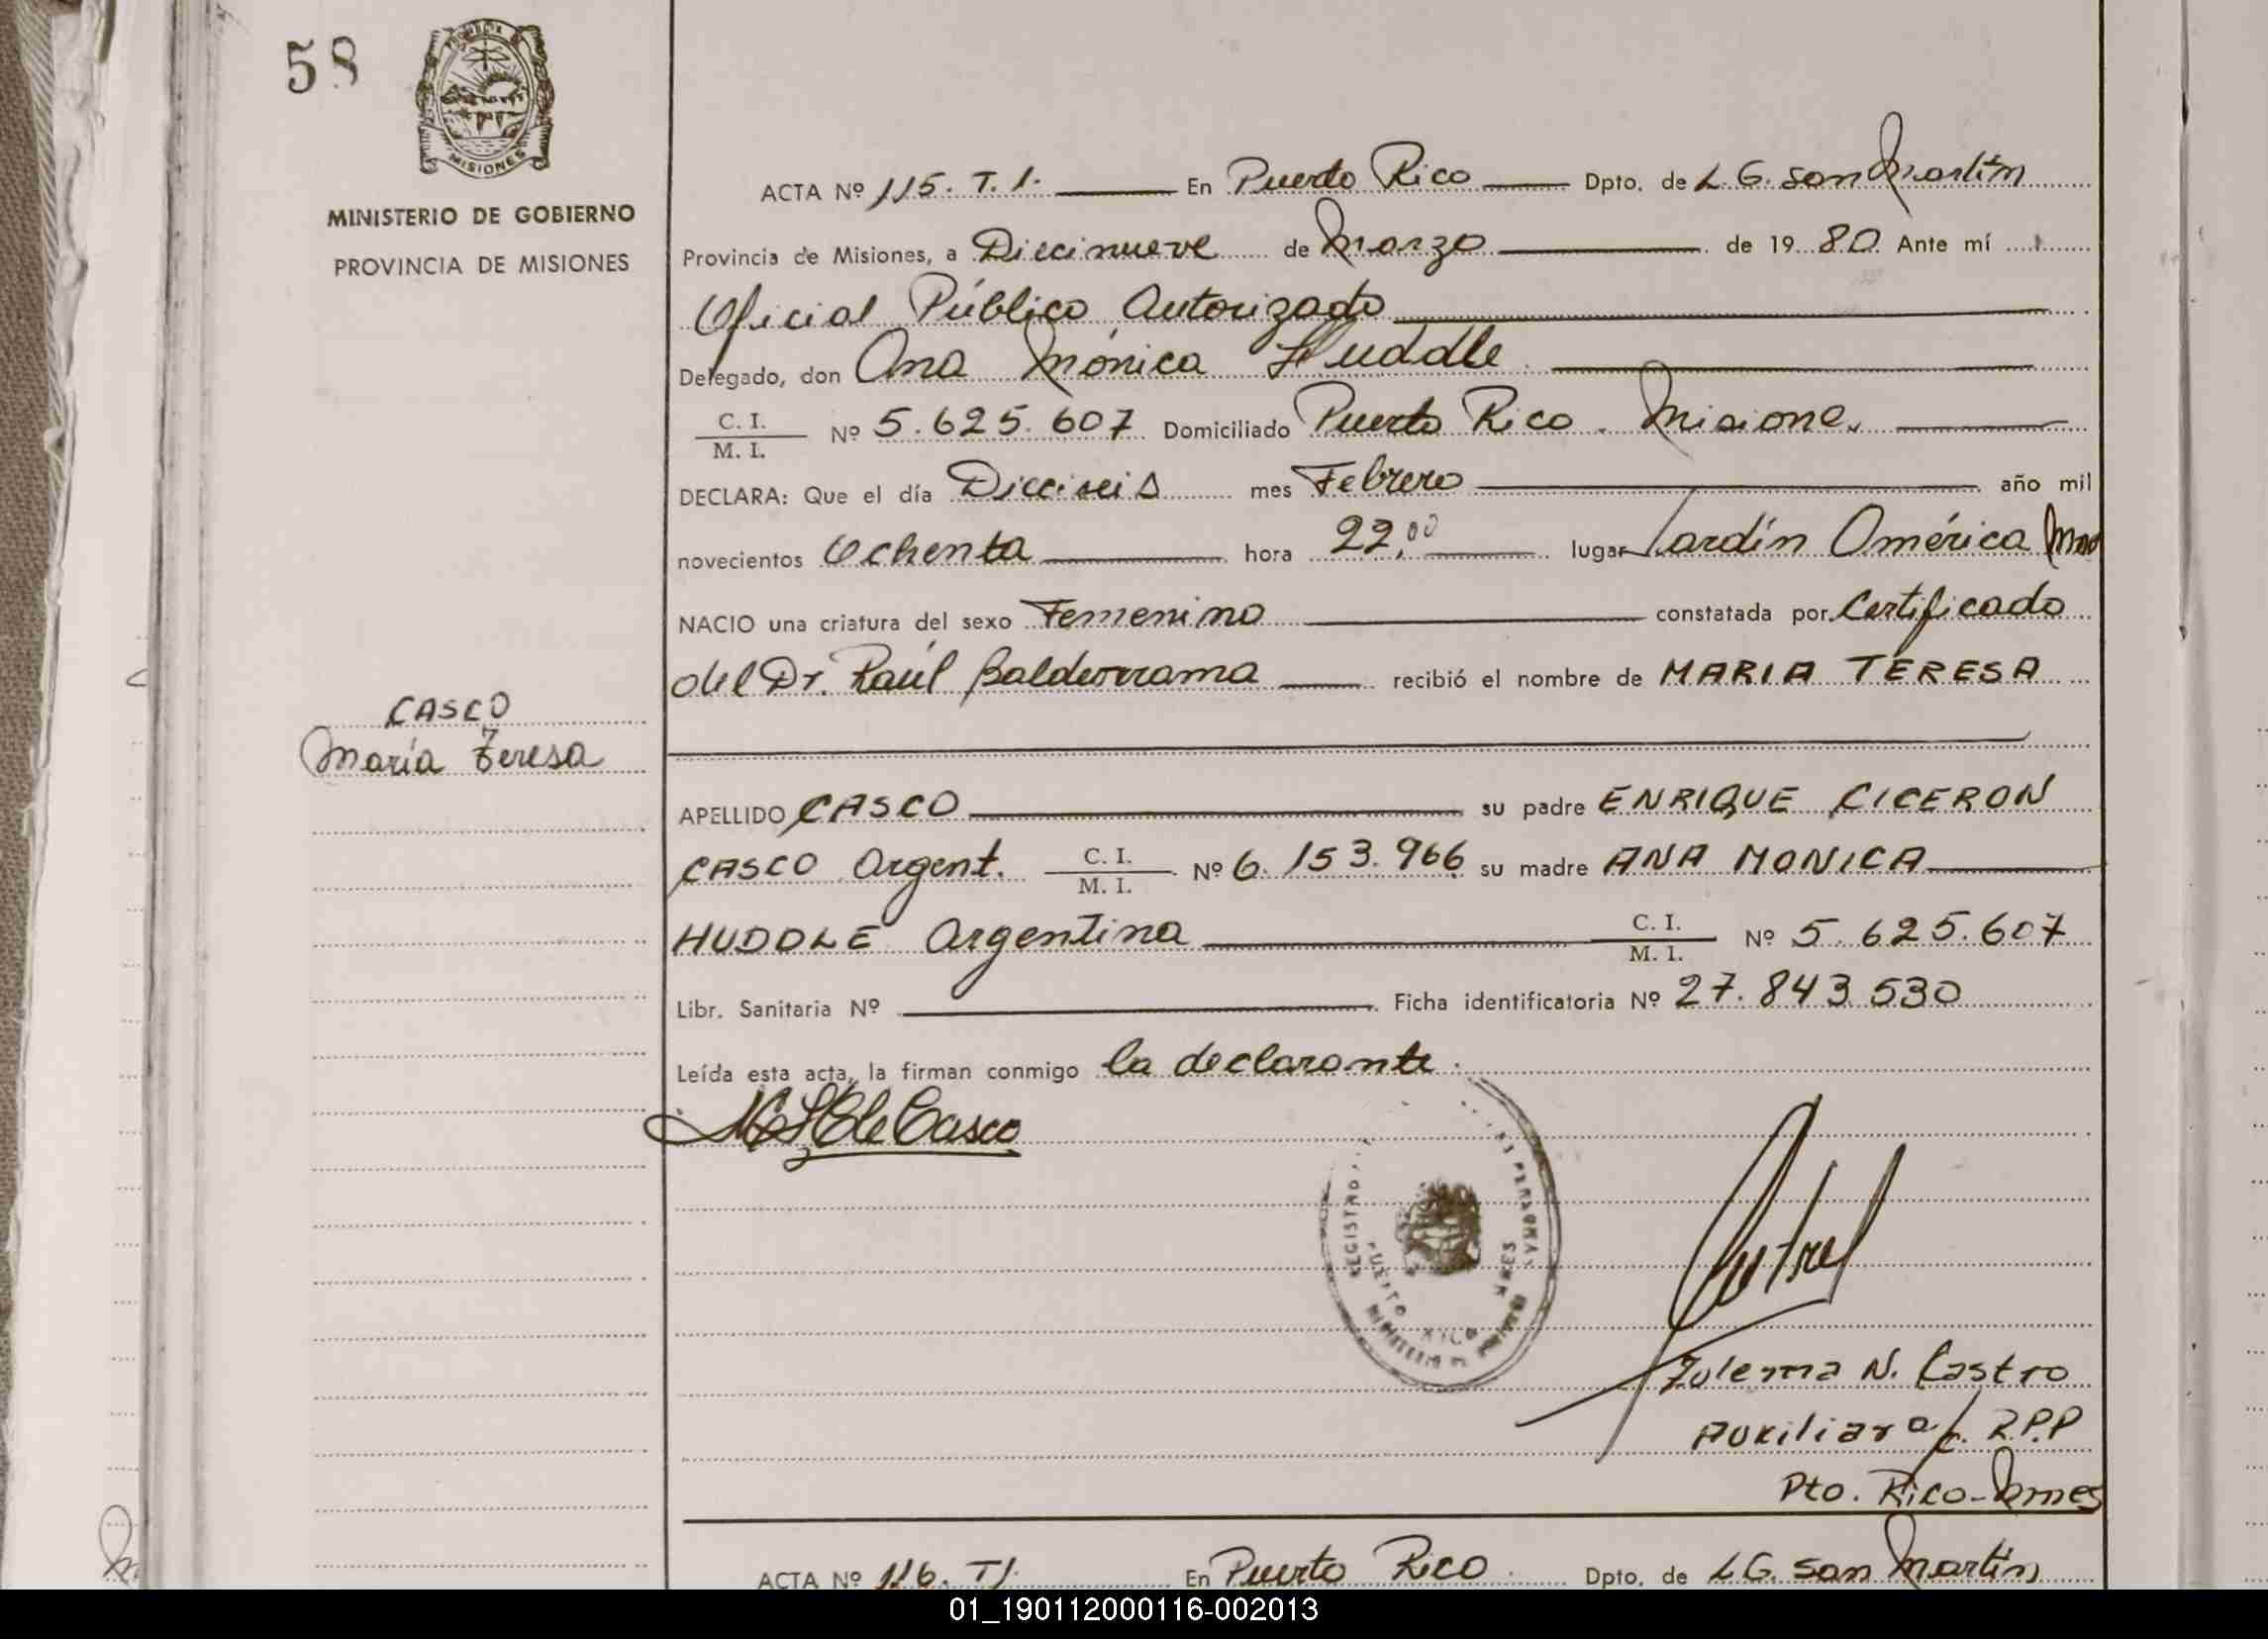 58
PROVINCIA DE
MISIONES
MINISTERIO DE GOBIERNO
PROVINCIA DE MISIONES
CASCO
María Teresa
ACTA Nº 115. T. I. En Puerto Rico Dpto. de L. G. San Martín
Provincia de Misiones, a Diecinueve de Marzo de 19 80 Ante mí
Oficial Público Autorizado
Delegado, don Ana Mónica Huddle
C. I.
M. I. Nº 5.625.607 Domiciliado Puerto Rico. Misiones
DECLARA: Que el día Dieciseis mes Febrero año mil
novecientos Ochenta hora 22,00 lugar Jardín América Mnes
NACIO una criatura del sexo Femenino constatada por Certificado
del Dr. Raúl Balderrama recibió el nombre de MARIA TERESA
APELLIDO CASCO su padre ENRIQUE CICERON
CASCO Argent. C. I. M. I. Nº 6.153.966 su madre ANA MONICA
HUDDLE Argentina C. I. M. I. Nº 5.625.607
Libr. Sanitaria Nº Ficha identificatoria Nº 27.843.530
Leída esta acta, la firman conmigo la declarante.
de Casco
REGISTRO PERSONAS
PUERTO RICO
Zulema N. Castro
Auxiliar a/c. R.P.P
Pto. Rico-Mnes
ACTA Nº 116. TI. En Puerto Rico Dpto. de L.G. San Martín
01_190112000116-002013